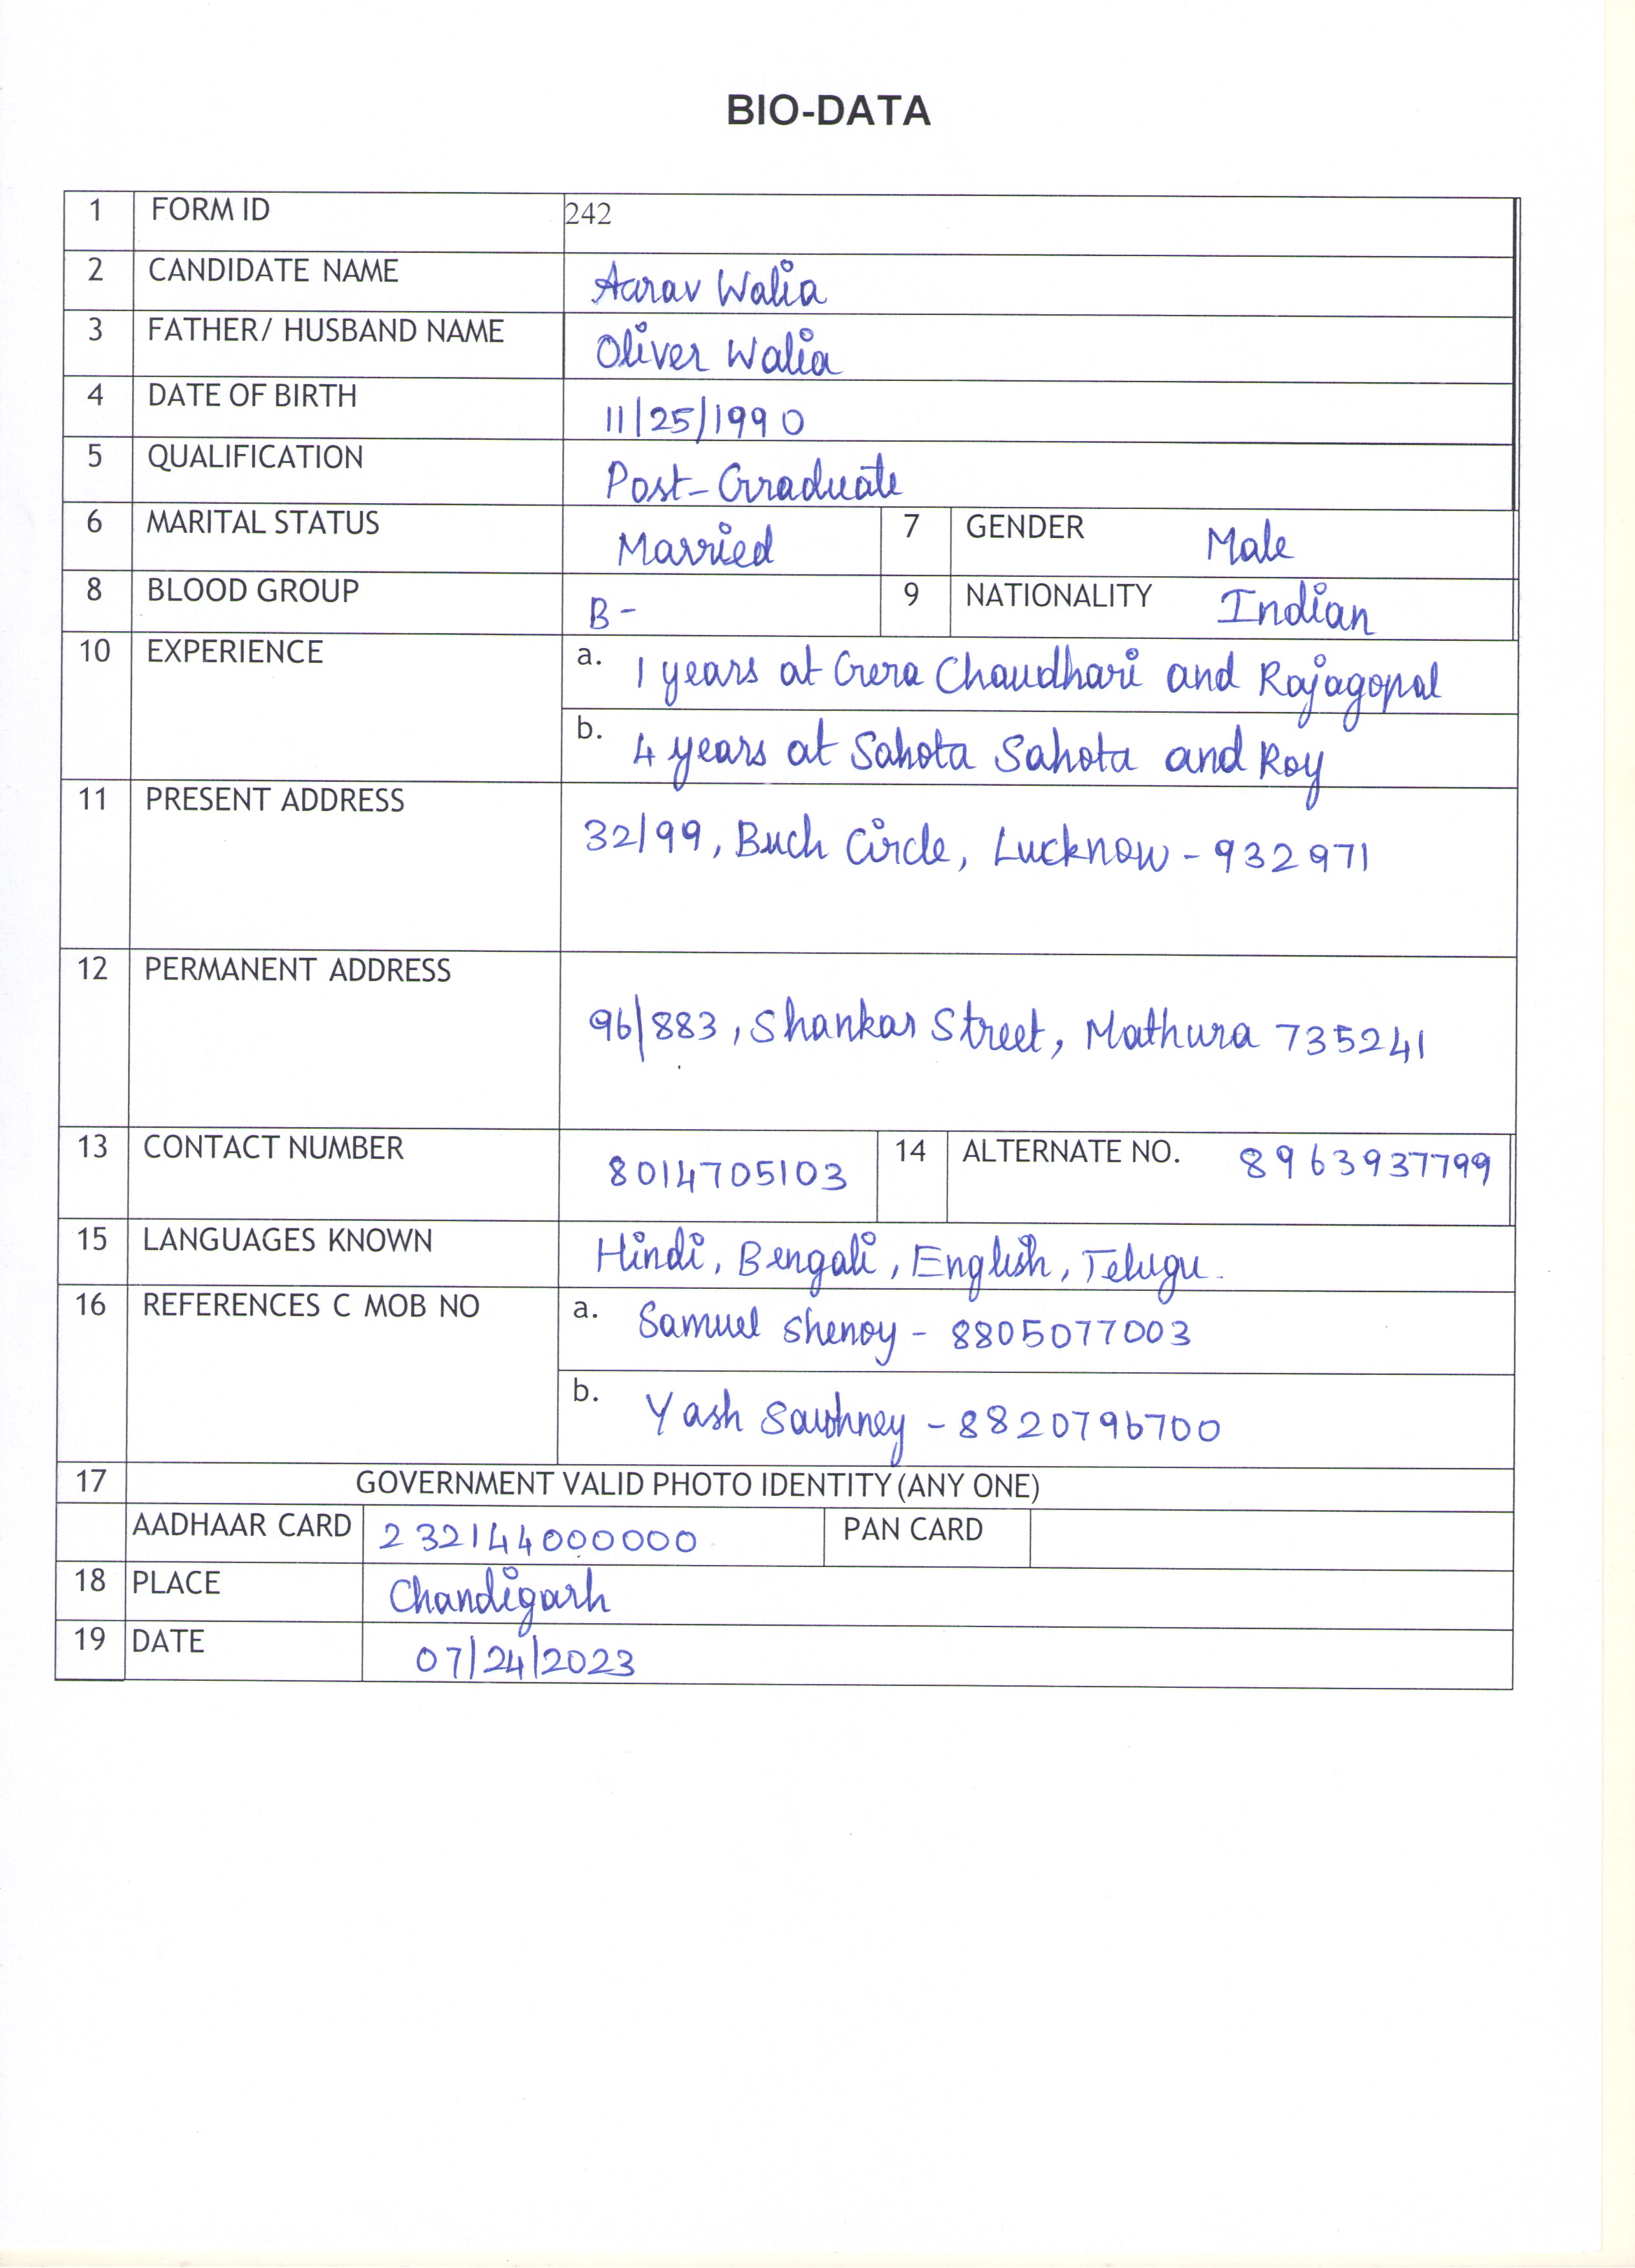 BIO-DATA
1 FORM ID 242
2 CANDIDATE NAME Aarav Walia
3 FATHER/ HUSBAND NAME Oliver Walia
4 DATE OF BIRTH 11/25/1990
5 QUALIFICATION Post-Graduate
6 MARITAL STATUS Married 7 GENDER Male
8 BLOOD GROUP B- 9 NATIONALITY Indian
10 EXPERIENCE a. 1 years at Gera Chaudhari and Rajagopal
b. 4 years at Sahota Sahota and Roy
11 PRESENT ADDRESS
32/99, Buch Circle, Lucknow - 932971
12 PERMANENT ADDRESS
96/883, Shankar Street, Mathura 735241
13 CONTACT NUMBER 8014705103 14 ALTERNATE NO. 8963937799
15 LANGUAGES KNOWN Hindi, Bengali, English, Telugu.
16 REFERENCES C MOB NO a. Samuel Shenoy - 8805077003
b. Yash Sawhney - 8820796700
17 GOVERNMENT VALID PHOTO IDENTITY (ANY ONE)
AADHAAR CARD 232144000000 PAN CARD
18 PLACE Chandigarh
19 DATE 07/24/2023